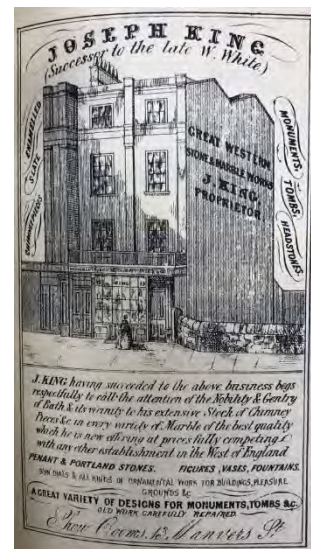 JOSEPH KING
(Successor to the late W. White)
ENAMELLED
SLATE
CHIMNEYPIECES
GREAT WESTERN
STONE & MARBLE WORKS
J. KING
PROPRIETOR
MONUMENTS,
TOMBS,
HEADSTONES
J. KING having succeeded to the above business begs
respectfully to call the attention of the Nobility & Gentry
of Bath & its vicinity to his extensive Stock of Chimney
Pieces &c in every variety of Marble of the best quality
which he is now offering at prices fully competing
with any other establishment in the West of England
PENANT & PORTLAND STONES. FIGURES, VASES, FOUNTAINS.
SUN DIALS & ALL KINDS OF ORNAMENTAL WORK FOR BUILDINGS, PLEASURE
GROUNDS &c
A GREAT VARIETY OF DESIGNS FOR MONUMENTS, TOMBS &c.
OLD WORK CAREFULLY REPAIRED
Show Rooms, Manvers St